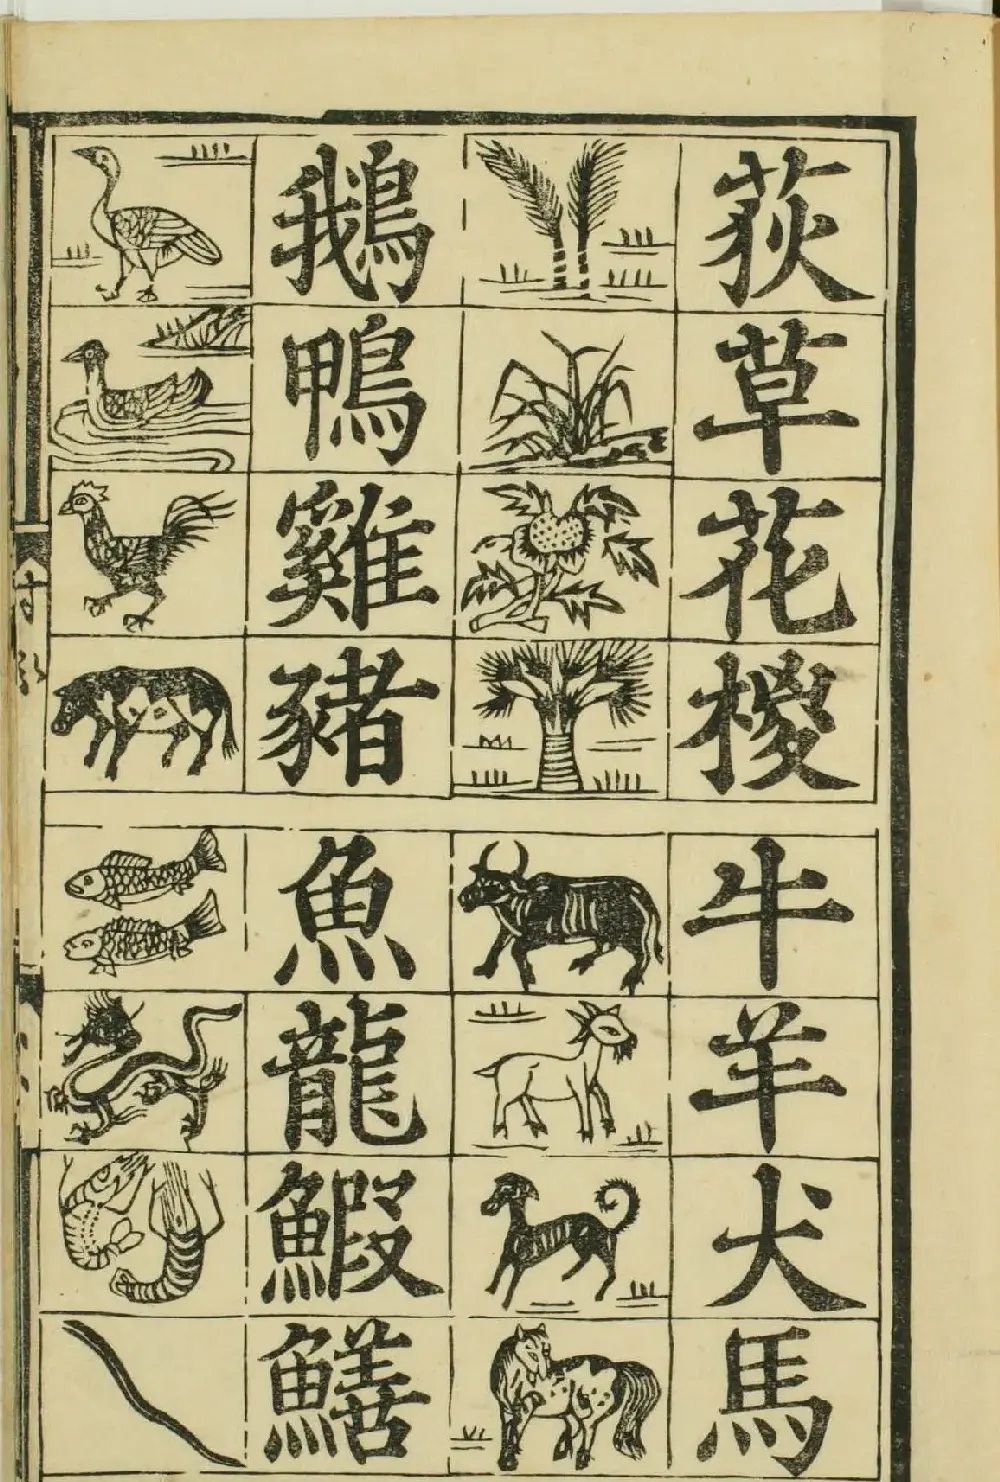 荻
草
花
椶
鵝
鴨
雞
豬
牛
羊
犬
馬
魚
龍
鰕
鱔